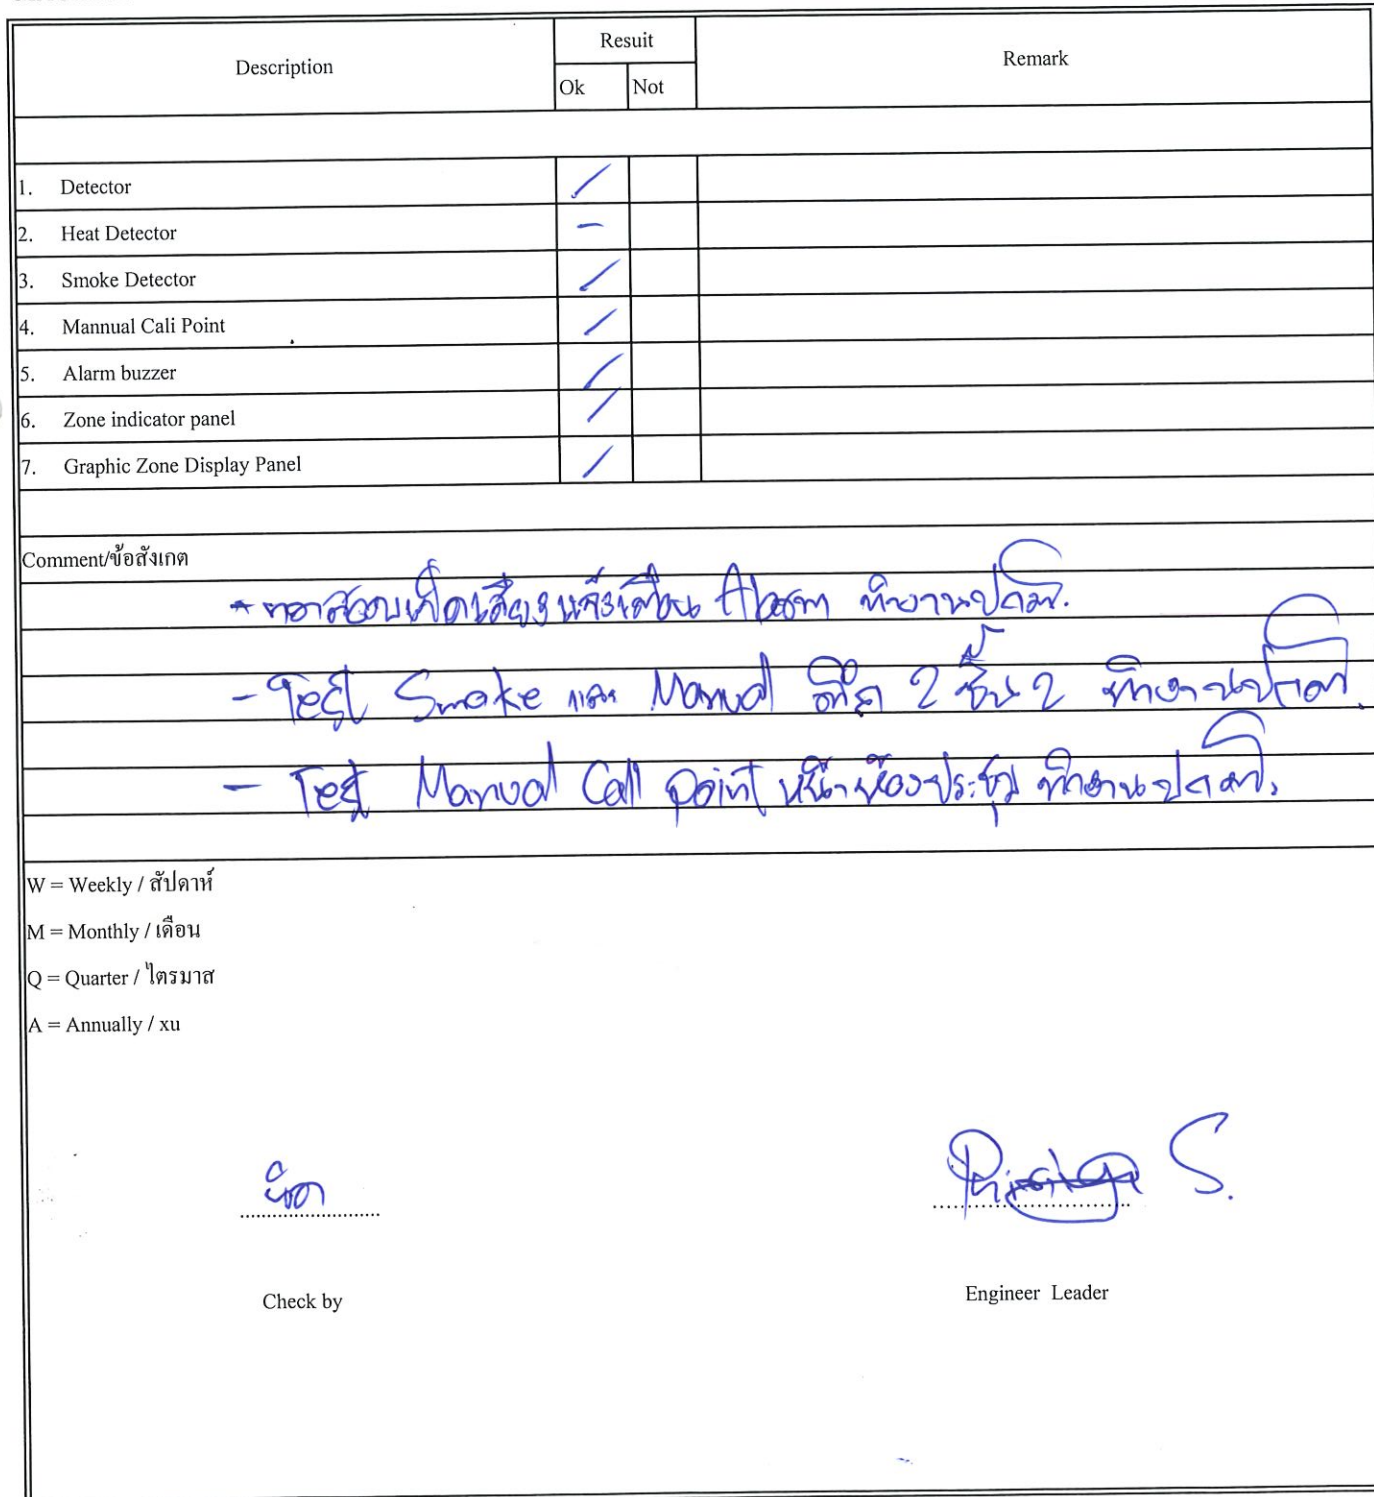 Description Resuit Remark
Ok Not
1. Detector /
2. Heat Detector -
3. Smoke Detector /
4. Mannual Cali Point /
5. Alarm buzzer /
6. Zone indicator panel /
7. Graphic Zone Display Panel /
Comment/ข้อสังเกต
- ทดสอบเปิดเสียงแจ้งเตือน Alarm ทำงานปกติ.
- Test Smoke และ Manual ตึก 2 ชั้น 2 ทำงานปกติ.
- Test Manual Call point หน้าห้องประชุม ทำงานปกติ.
W = Weekly / สัปดาห์
M = Monthly / เดือน
Q = Quarter / ไตรมาส
A = Annually / xu
S.
Check by Engineer Leader